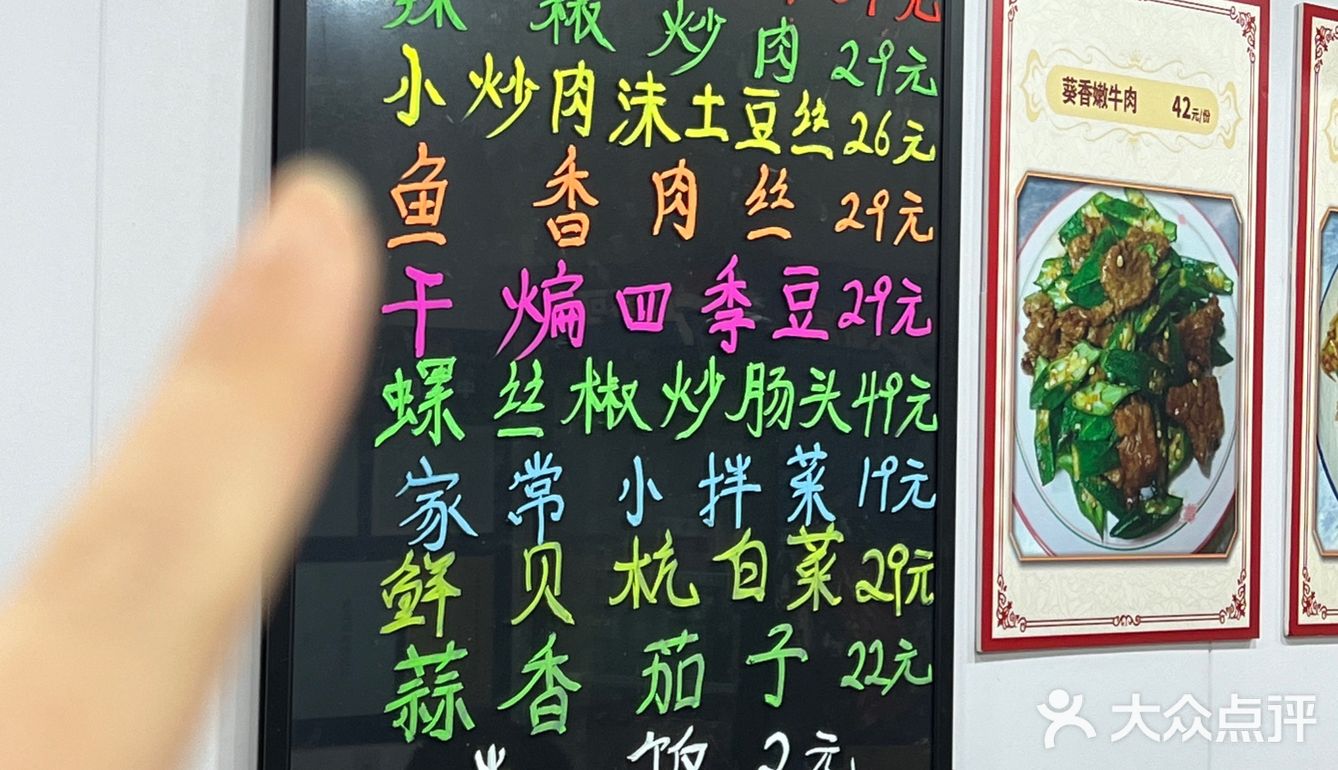 辣椒炒肉29元
小炒肉沫土豆丝26元
鱼香肉丝29元
干煸四季豆29元
螺丝椒炒肠头49元
家常小拌菜19元
鲜贝杭白菜29元
蒜香茄子22元
米饭2元
葵香嫩牛肉 42元/份
大众点评